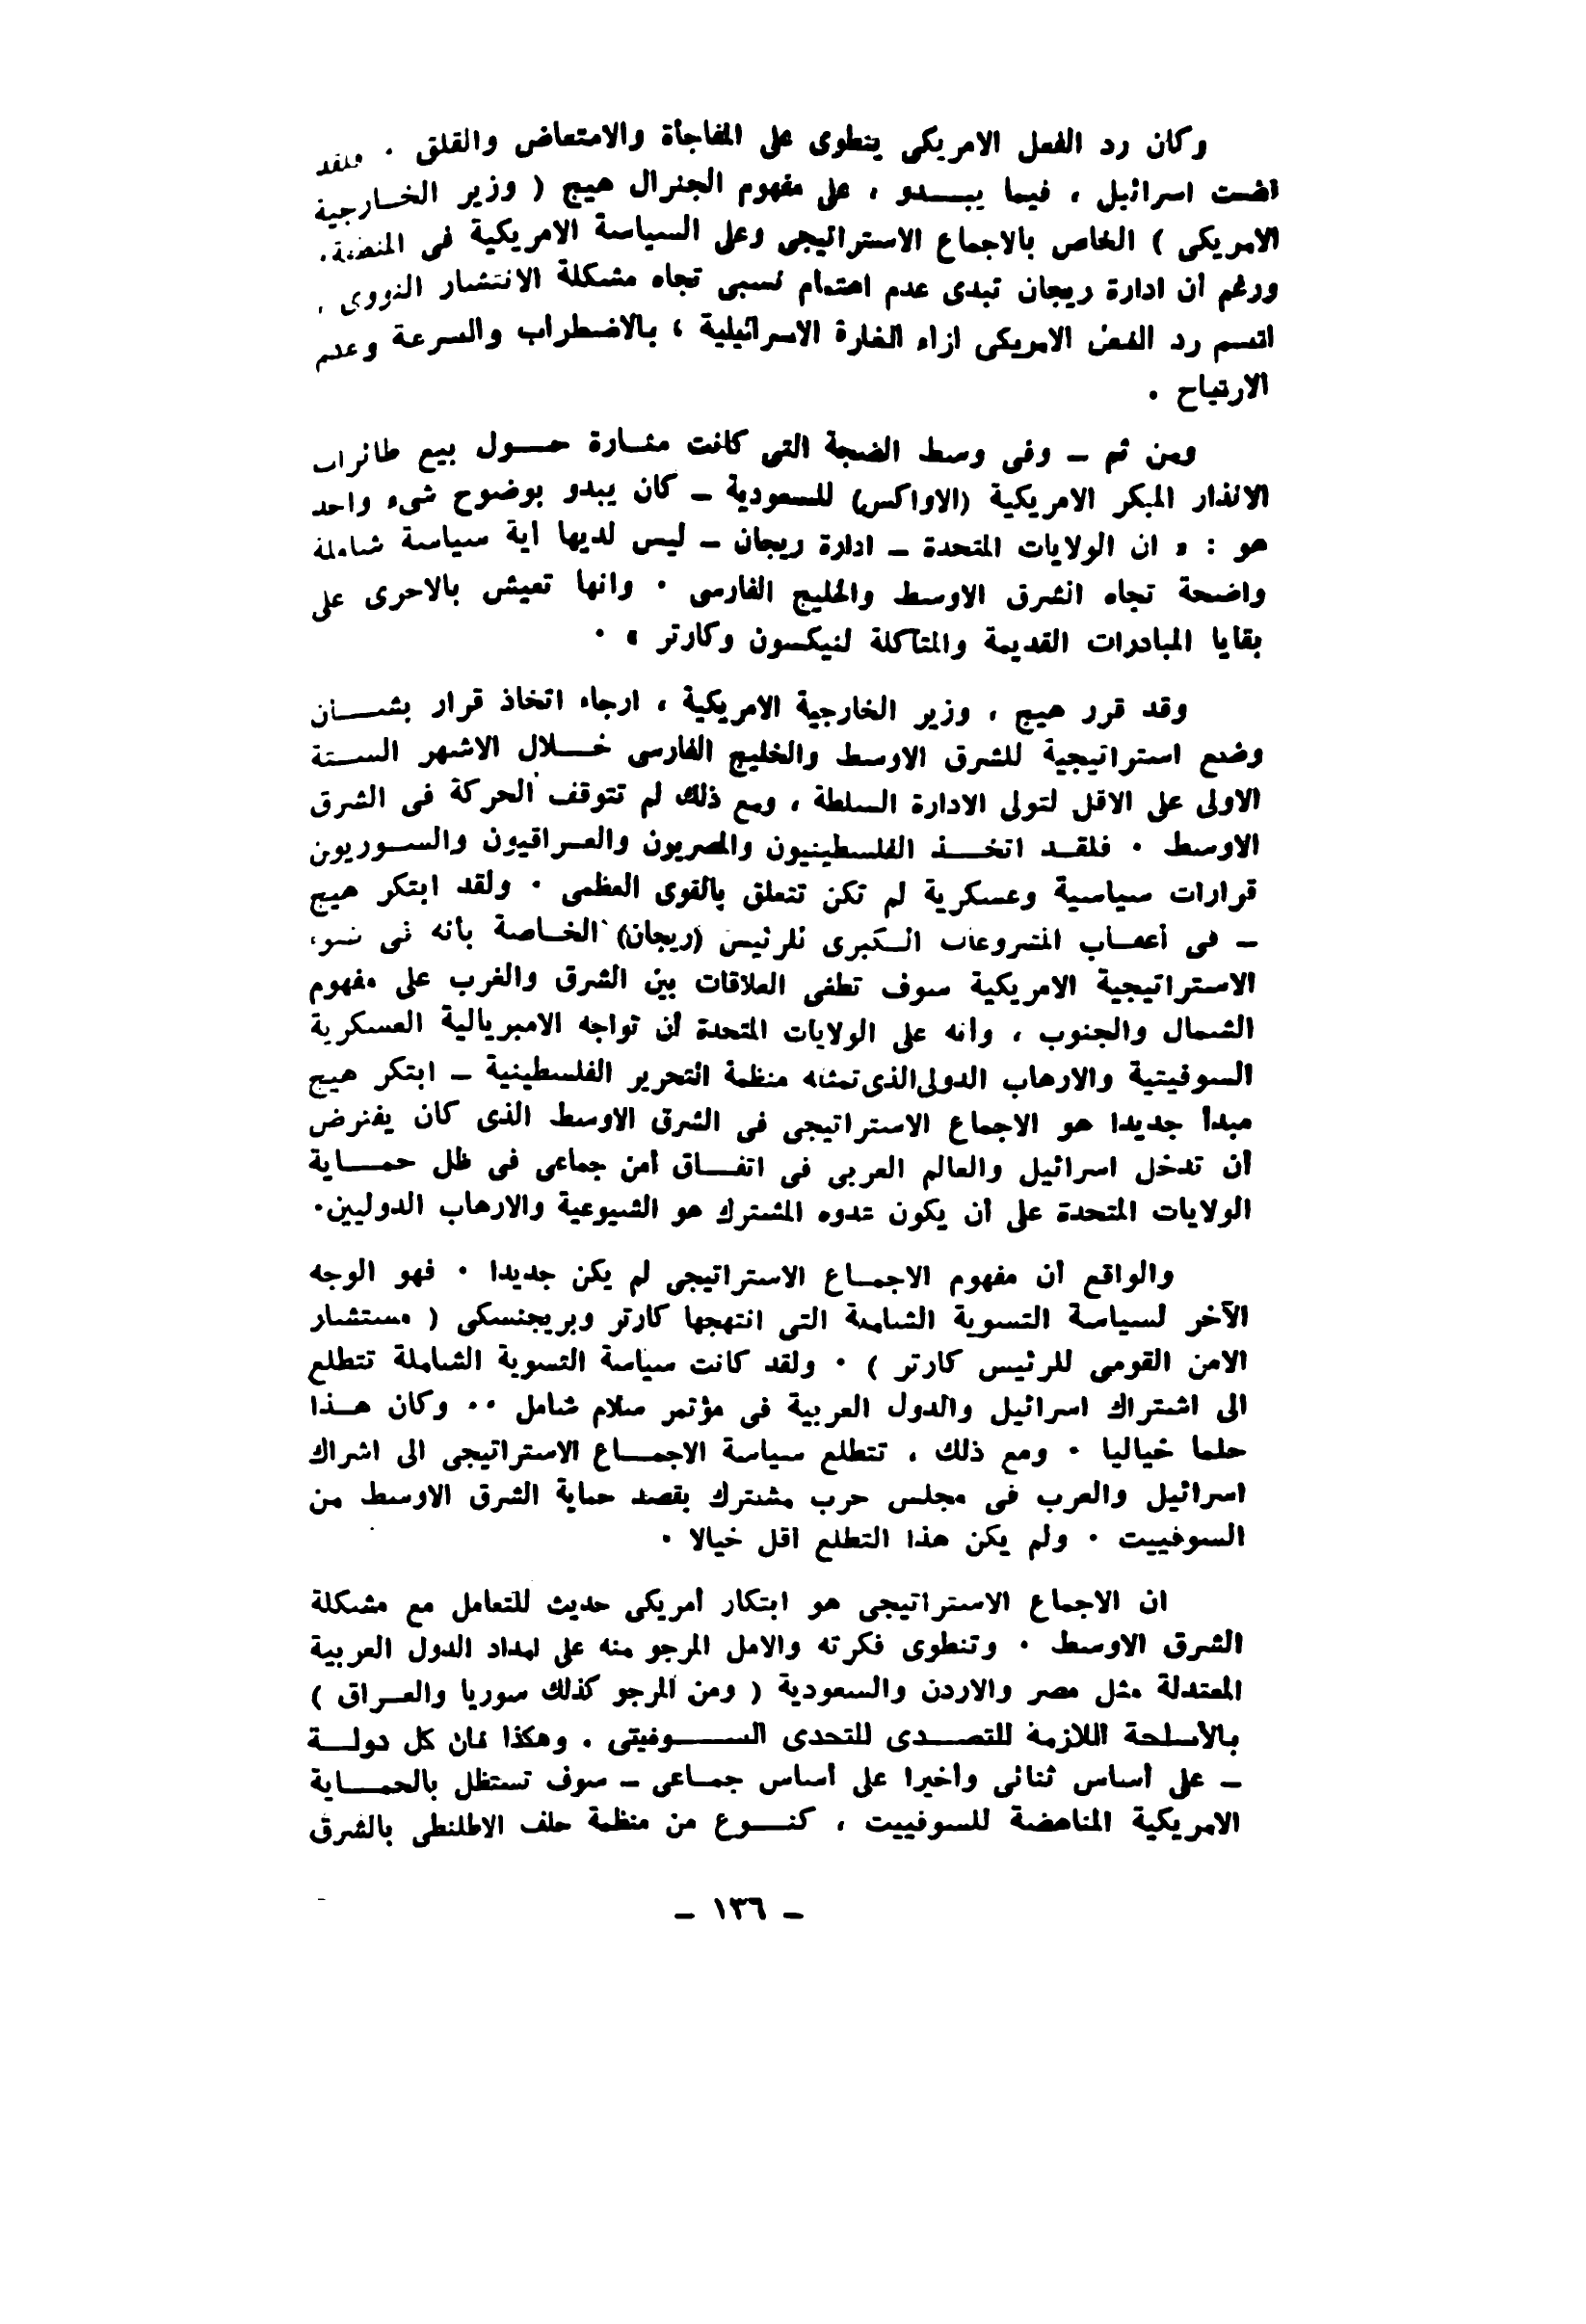 وكان رد الفعل الامريكى ينطوى على المفاجأة والامتعاض والقلق ٠ فلقد
اسرائيل ، فيما يبـــدو ، على مفهوم الجنرال هيج ( وزير الخــارجية
الامريكى ) الخاص بالاجماع الاستراتيجى وعلى السياسة الامريكية فى المنطقة.
ورغم أن ادارة ريجان تبدى عدم اهتمام نسبى تجاه مشكلة الانتشار النووى ،
اتسم رد الفعل الامريكى ازاء الغارة الاسرائيلية ، بالاضطراب والسرعة وعدم
الارتياح .
ومن ثم ــ وفى وسط الضجة التى كانت مثــارة حـــول بيع طائرات
الانذار المبكر الامريكية (الاواكس) للسعودية ــ كان يبدو بوضوح شىء واحد
هو : « ان الولايات المتحدة ــ ادارة ريجان ــ ليس لديها أية سياسة شاملة
واضحة تجاه الشرق الاوسط والخليج الفارسى ٠ وانها تعيش بالاحرى على
بقايا المبادرات القديمة والمتآكلة لنيكسون وكارتر » ٠
وقد قرر هيج ، وزير الخارجية الامريكية ، ارجاء اتخاذ قرار بشــــأن
وضع استراتيجية للشرق الاوسط والخليج الفارسى خـــلال الاشهر الستة
الاولى على الاقل لتولى الادارة السلطة ، ومع ذلك لم تتوقف الحركة فى الشرق
الاوسط ٠ فلقـــد اتخـــذ الفلسطينيون والمصريون والعــراقيون والســوريون
قرارات سياسية وعسكرية لم تكن تتعلق بالقوى العظمى ٠ ولقد ابتكر هيج
ــ فى أعقــاب المشروعات الــكبرى للرئيس (ريجان) الخــاصة بأنه فى ضوء
الاستراتيجية الامريكية سوف تطغى العلاقات بين الشرق والغرب على مفهوم
الشمال والجنوب ، وأنه على الولايات المتحدة أن تواجه الامبريالية العسكرية
السوفيتية والارهاب الدولى الذى تمثله منظمة التحرير الفلسطينية ــ ابتكر هيج
مبدأ جديدا هو الاجماع الاستراتيجى فى الشرق الاوسط الذى كان يفترض
أن تدخل اسرائيل والعالم العربى فى اتفـــاق أمن جماعى فى ظل حمـــاية
الولايات المتحدة على أن يكون عدوه المشترك هو الشيوعية والارهاب الدوليين٠
والواقع أن مفهوم الاجمــاع الاستراتيجى لم يكن جديدا ٠ فهو الوجه
الآخر لسياسة التسوية الشاملة التى انتهجها كارتر وبريجنسكى ( مستشار
الامن القومى للرئيس كارتر ) ٠ ولقد كانت سياسة التسوية الشاملة تتطلع
الى اشتراك اسرائيل والدول العربية فى مؤتمر سلام شامل ٠٠ وكان هـــذا
حلما خياليا ٠ ومع ذلك ، تتطلع سياسة الاجمـــاع الاستراتيجى الى اشراك
اسرائيل والعرب فى مجلس حرب مشترك بقصد حماية الشرق الاوسط من
السوفييت ٠ ولم يكن هذا التطلع أقل خيالا ٠
ان الاجماع الاستراتيجى هو ابتكار أمريكى حديث للتعامل مع مشكلة
الشرق الاوسط ٠ وتنطوى فكرته والامل المرجو منه على امداد الدول العربية
المعتدلة مثل مصر والاردن والسعودية ( ومن المرجو كذلك سوريا والعــراق )
بالأسلحة اللازمة للتصـــدى للتحدى الســـــوفيتى . وهكذا فان كل دولـــة
ــ على أساس ثنائى وأخيرا على أساس جمــاعى ــ سوف تستظل بالحمـــاية
الامريكية المناهضة للسوفييت ، كنــــوع من منظمة حلف الاطلنطى بالشرق
ــ ١٣٦ ــ